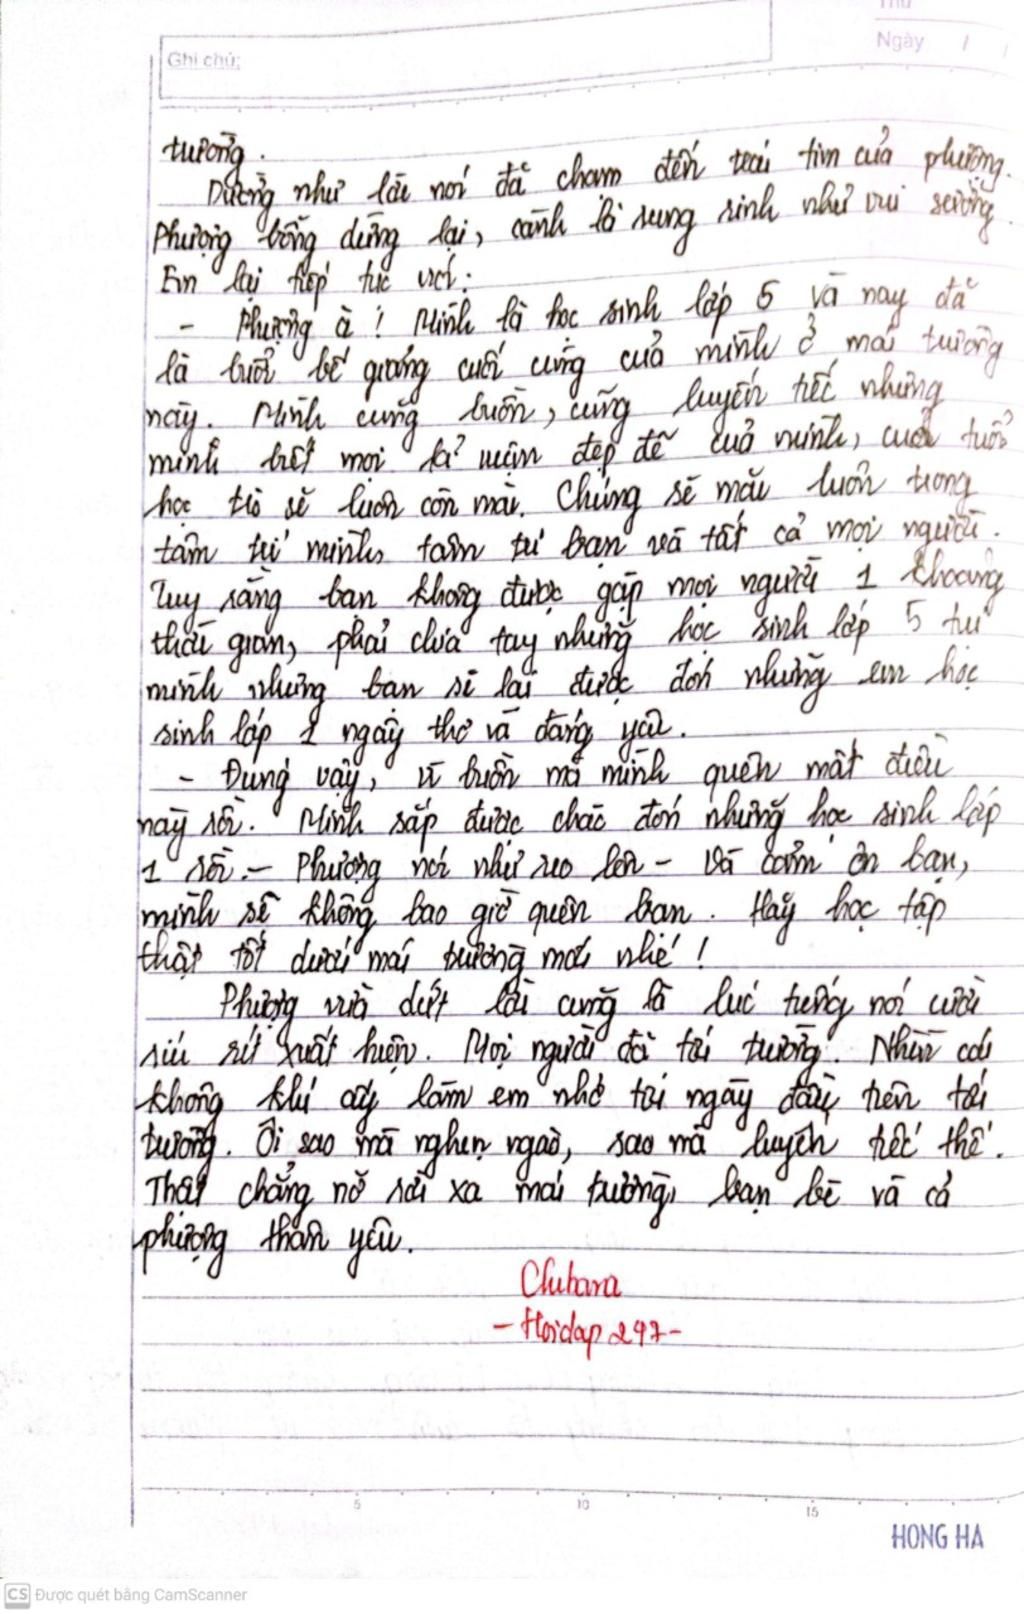 Thứ
Ngày / /
Ghi chú:
trường.
Dường như lời nói đã chạm đến trái tim của phượng.
Phượng bỗng dừng lại, cành lá rung rinh như vui sướng.
Em lại tiếp tục với:
- Phượng à! Mình là học sinh lớp 5 và nay đã
là buổi bế giảng cuối cùng của mình ở mái trường
này. Mình cũng buồn, cũng luyến tiếc nhưng
mình biết mọi kỉ niệm đẹp đẽ của mình, của tuổi
học trò sẽ luôn còn mãi. Chúng sẽ mãi luôn trong
tâm trí mình, tâm trí bạn và tất cả mọi người.
Tuy rằng bạn không được gặp mọi người 1 khoảng
thời gian, phải chia tay những học sinh lớp 5 tụi
mình nhưng bạn sẽ lại được đón những em học
sinh lớp 1 ngây thơ và đáng yêu.
- Đúng vậy, vì buồn mà mình quên mất điều
này rồi. Mình sắp được chào đón những học sinh lớp
1 rồi. - Phượng nói như reo lên - Và cảm ơn bạn,
mình sẽ không bao giờ quên bạn. Hãy học tập
thật tốt dưới mái trường mới nhé!
Phượng vừa dứt lời cũng là lúc tiếng nói cười
ríu rít xuất hiện. Mọi người đã tới trường. Nhìn cái
không khí ấy làm em nhớ tới ngày đầu tiên tới
trường. Ôi sao mà nghẹn ngào, sao mà luyến tiếc thế.
Thật chẳng nỡ rời xa mái trường, bạn bè và cả
phượng thân yêu.
Chibara
- Hoidap 247 -
5 10 15
HONG HA
CS Được quét bằng CamScanner